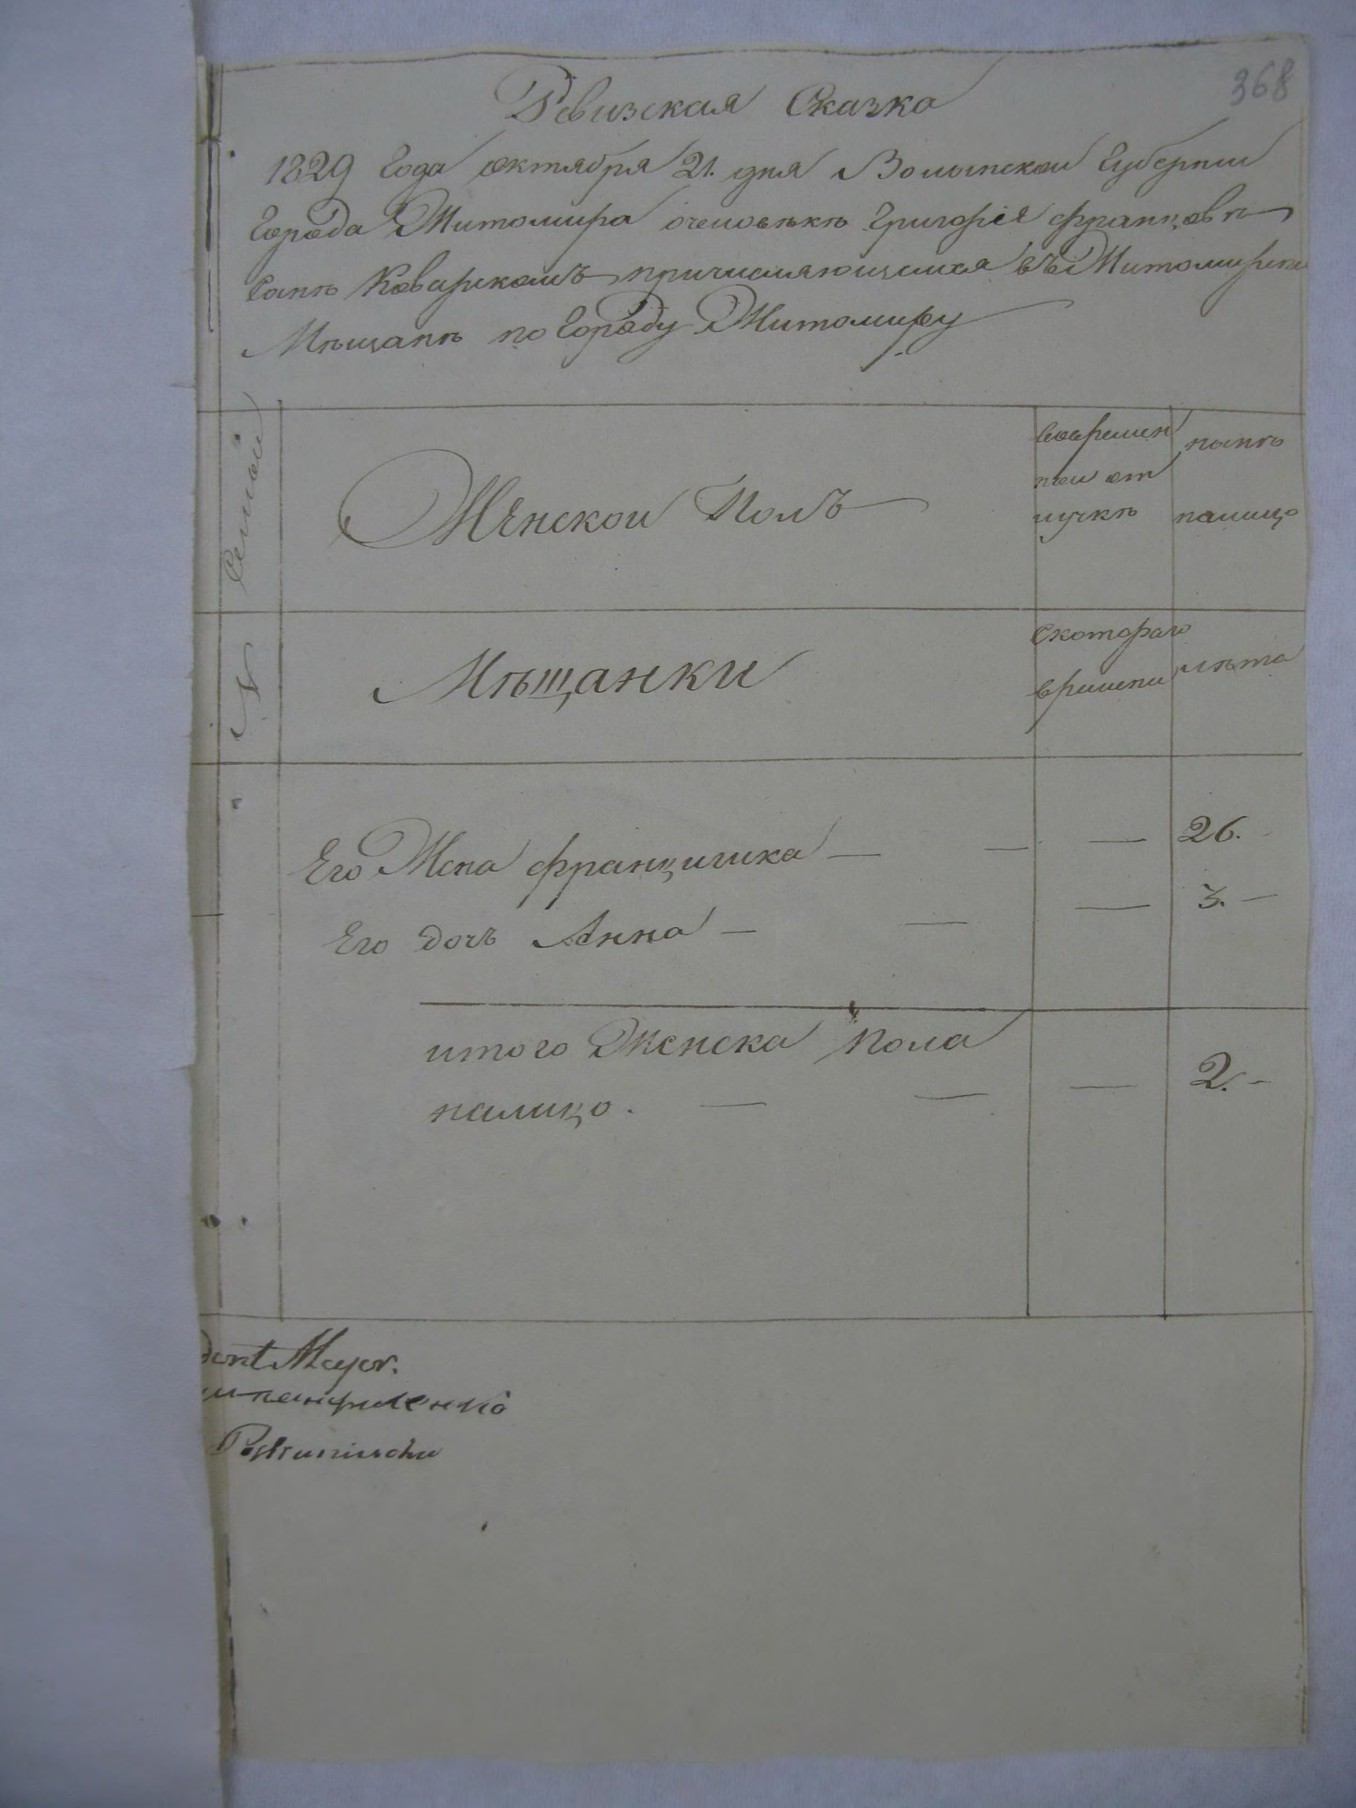 368
Ревизская Сказка
1829 Года октября 21. дня Волынской Губернии
Города Житомира о человеке Григорiя Францов
Коварскомъ причисляющемся въ Житомирски
Мѣщанѣ по Городу Житомиру
№ Семей
Женской Полъ
вовремен
ной от
лучкѣ
нынѣ
налицо
Мѣщанки
Скотораго
времени
лѣта
Его Жена Францишка — — — 26.
Его дочь Анна — — — 3. —
итого Женска пола
налицо. — — — 2. —
dent Mayor.